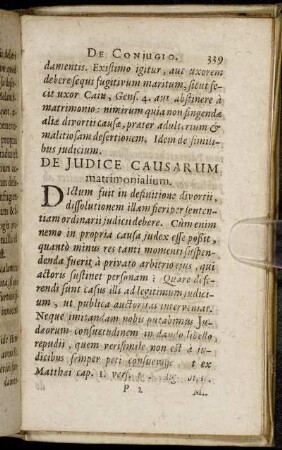 DE CONJUGIO. 339
damentis. Existimo igitur, aut uxorem
debere sequi fugitivum maritum, sicut fe-
cit uxor Cain, Gens. 4. aut abstinere à
matrimonio: nimirum quia non fingendæ
aliæ divortii causæ, præter adulterium &
malitiosam desertionem. Idem de simili-
bus judicium.
DE JUDICE CAUSARUM
matrimonialium.
DIctum fuit in definitione divortii,
dissolutionem illam fieri per senten-
tiam ordinarii judicis debere. Cum enim
nemo in propria causa judex esse possit,
quantò minus res tanti momenti suspen-
denda fuerit à privato arbitrio ejus, qui
actoris sustinet personam? Quare defe-
rendi sunt casus illi ad legitimum judici-
um, ut publica auctoritas interveniat.
Neque imitandam nobis putabimus Ju-
dæorum consuetudinem in dando libello
repudii, quem verisimile non est à ju-
dicibus semper peti consuevisse
ex
Matthæi cap. 1. vers.
P 2